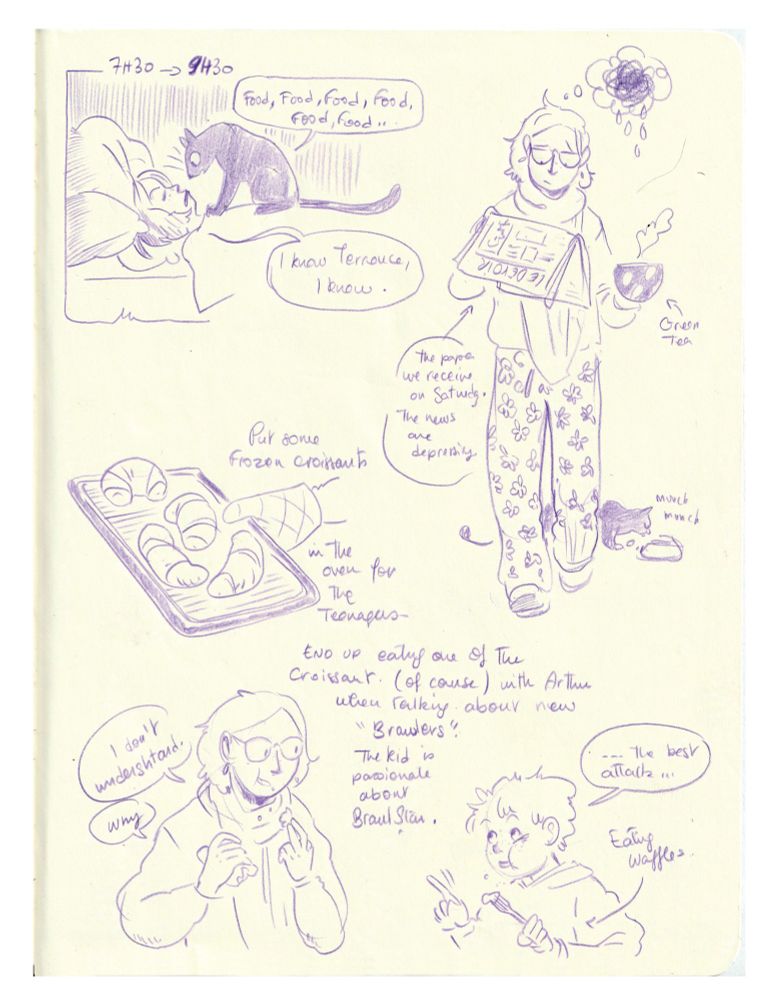 7H30 → 9H30
Food, Food, Food, Food,
Food, Food...
I know Terrance,
I know.
LE DEVOIR
Green
Tea
The paper
we receive
on Saturdy.
The news
are
depressing
munch
munch
Put some
Frozen croissants
in the
oven for
the
Teenagers
END UP eating one of the
croissant. (of course) with Arthur
when talking about new
"Brawlers".
The kid is
passionate
about
Brawl Star.
I don't
understand.
why
--- The best
attack...
Eating
waffles.